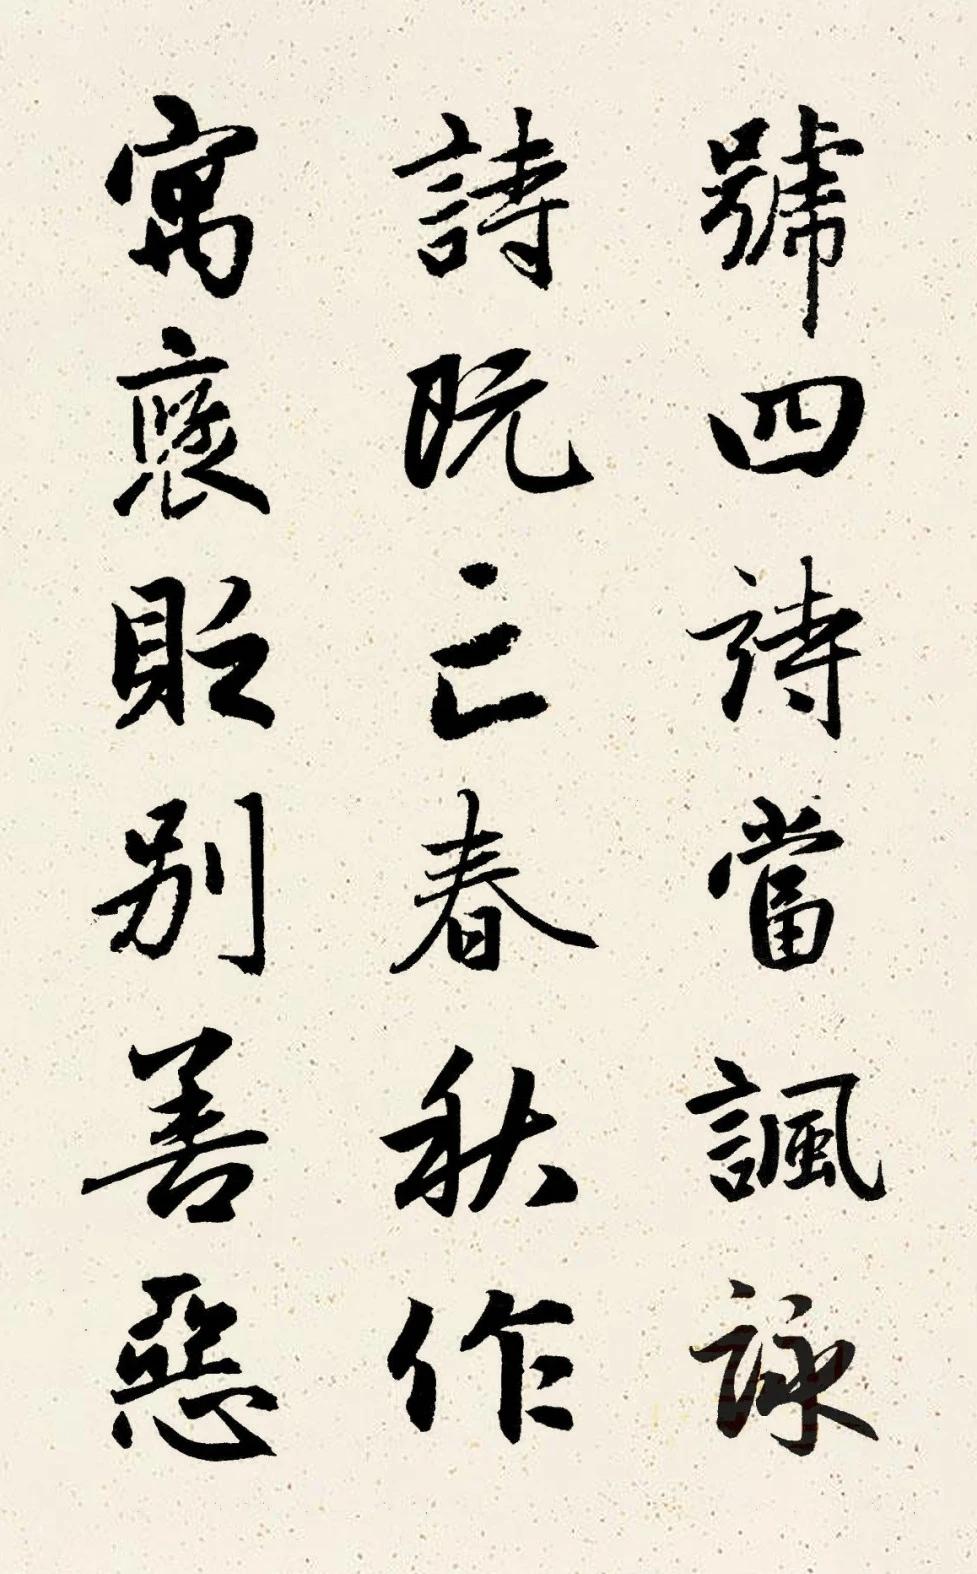 號四詩當諷詠
詩既亡春秋作
寓褒貶别善惡